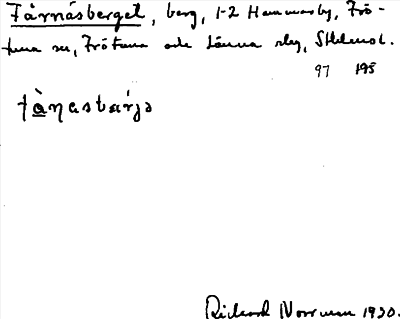 Tårnåsberget, berg, 1-2 Hammarby, Frö-
tuna sn, Frötuna och Länna slg, Sthlmsl.
97 195
tå̀nastárjə
Richard Norrman 1930.